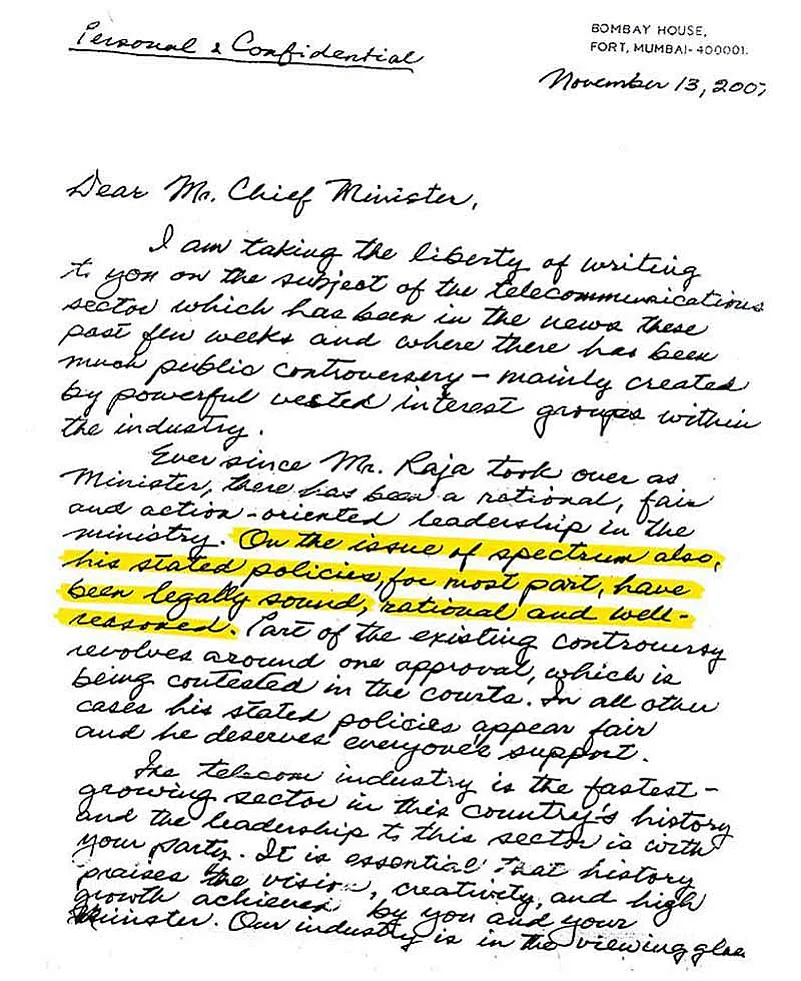 Personal & Confidential
BOMBAY HOUSE,
FORT, MUMBAI-400001.
November 13, 2007
Dear Mr. Chief Minister,
I am taking the liberty of writing
to you on the subject of the telecommunications
sector which has been in the news these
past few weeks and where there has been
much public controversery - mainly created
by powerful vested interest groups within
the industry.
Ever since Mr. Raja took over as
Minister, there has been a rational, fair
and action-oriented leadership in the
ministry. On the issue of spectrum also,
his stated policies, for most part, have
been legally sound, rational and well-
reasoned. Part of the existing controversy
revolves around one approval, which is
being contested in the courts. In all other
cases his stated policies appear fair
and he deserves everyone's support.
The telecom industry is the fastest-
growing sector in this country's history
and the leadership to this sector is with
your party. It is essential that history
praises the vision, creativity, and high
growth achieved by you and your
Minister. Our industry is in the viewing glass